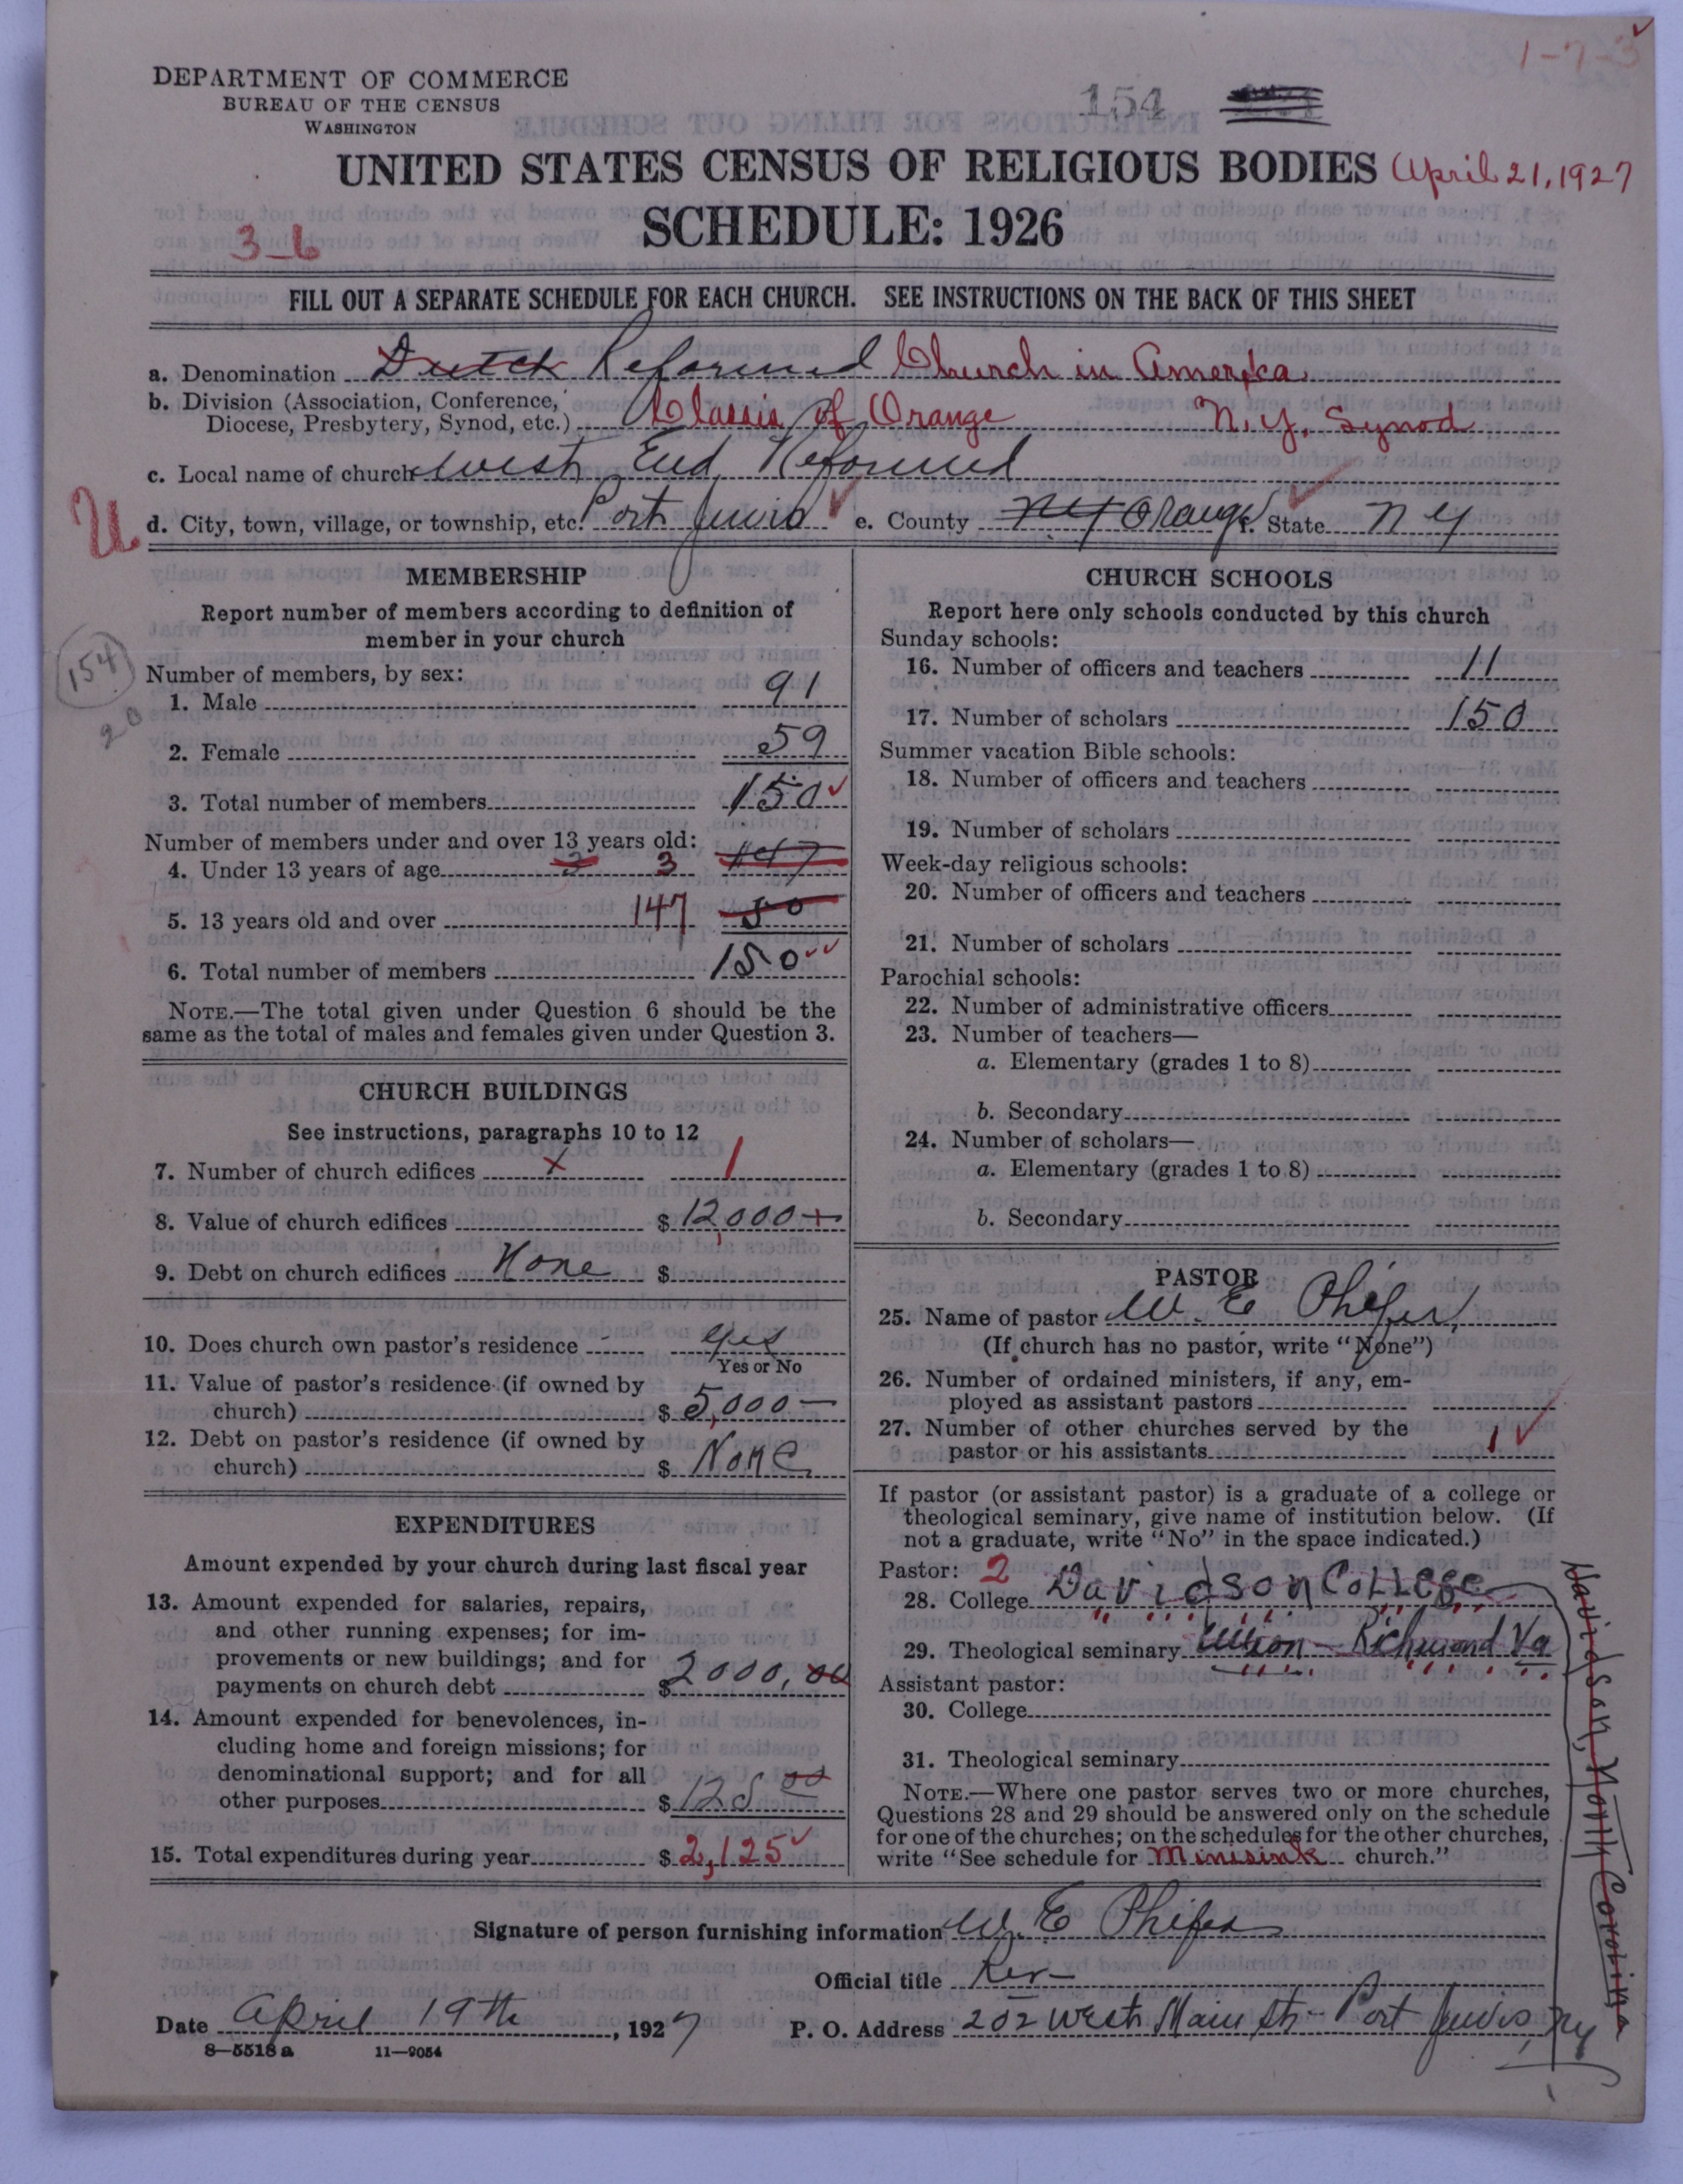 1-7-3
DEPARTMENT OF COMMERCE
BUREAU OF THE CENSUS
WASHINGTON
154
UNITED STATES CENSUS OF RELIGIOUS BODIES April 21, 1927
SCHEDULE: 1926
3-6
FILL OUT A SEPARATE SCHEDULE FOR EACH CHURCH. SEE INSTRUCTIONS ON THE BACK OF THIS SHEET
a. Denomination Dutch Reformed Church in America
b. Division (Association, Conference,
Diocese, Presbytery, Synod, etc.) Classis of Orange N.Y. Synod
c. Local name of church West End Reformed
U
d. City, town, village, or township, etc. Port Jervis e. County NY Orange f. State NY
MEMBERSHIP
Report number of members according to definition of
member in your church
154
20
Number of members, by sex:
1. Male 91
2. Female 59
3. Total number of members 150
Number of members under and over 13 years old:
4. Under 13 years of age 3 147
5. 13 years old and over 147 50
6. Total number of members 150
NOTE.—The total given under Question 6 should be the
same as the total of males and females given under Question 3.
CHURCH BUILDINGS
See instructions, paragraphs 10 to 12
7. Number of church edifices x 1
8. Value of church edifices $ 12,000
9. Debt on church edifices None $
10. Does church own pastor's residence yes
Yes or No
11. Value of pastor's residence (if owned by
church) $ 5,000—
12. Debt on pastor's residence (if owned by
church) $ None
EXPENDITURES
Amount expended by your church during last fiscal year
13. Amount expended for salaries, repairs,
and other running expenses; for im-
provements or new buildings; and for
payments on church debt $ 2000,00
14. Amount expended for benevolences, in-
cluding home and foreign missions; for
denominational support; and for all
other purposes $ 125 00
15. Total expenditures during year $ 2,125
CHURCH SCHOOLS
Report here only schools conducted by this church
Sunday schools:
16. Number of officers and teachers 11
17. Number of scholars 150
Summer vacation Bible schools:
18. Number of officers and teachers
19. Number of scholars
Week-day religious schools:
20. Number of officers and teachers
21. Number of scholars
Parochial schools:
22. Number of administrative officers
23. Number of teachers—
a. Elementary (grades 1 to 8)
b. Secondary
24. Number of scholars—
a. Elementary (grades 1 to 8)
b. Secondary
PASTOR
25. Name of pastor W. E. Phifer
(If church has no pastor, write "None")
26. Number of ordained ministers, if any, em-
ployed as assistant pastors
27. Number of other churches served by the
pastor or his assistants 1
If pastor (or assistant pastor) is a graduate of a college or
theological seminary, give name of institution below. (If
not a graduate, write "No" in the space indicated.)
Pastor: 2
28. College Davidson College
29. Theological seminary Union - Richmond Va
Assistant pastor:
30. College
31. Theological seminary
NOTE.—Where one pastor serves two or more churches,
Questions 28 and 29 should be answered only on the schedule
for one of the churches; on the schedules for the other churches,
write "See schedule for Minisink church."
Davidson, North Carolina
Signature of person furnishing information W. E. Phifer
Official title Rev
Date April 19th, 1927 P. O. Address 202 West Main St - Port Jervis, NY
8—5518 a 11—9054